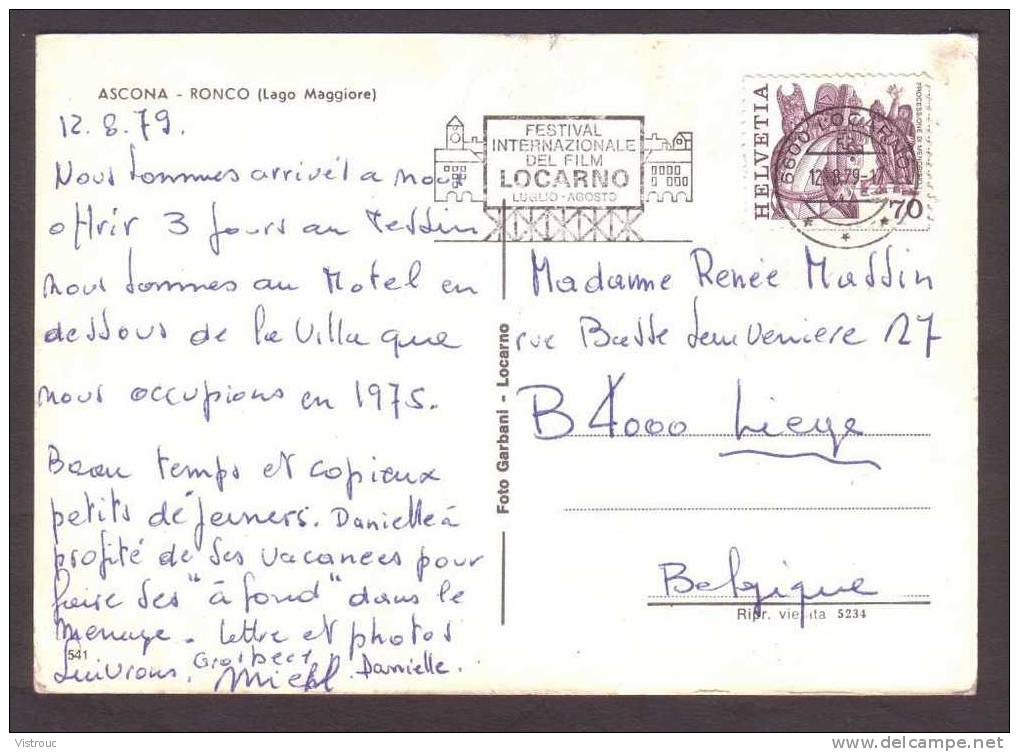 ASCONA - RONCO (Lago Maggiore)
12.8.79.
Nous sommes arrivés a nous
offrir 3 jours au Tessin
nous sommes au Motel en
dessous de la Villa que
nous occupions en 1975.
Beau temps et copieux
petits déjeuners. Danielle à
profité de ses vacances pour
faire ses "à fond" dans le
menage. Lettre et photos
suivrons. Danielle.
541
FESTIVAL
INTERNAZIONALE
DEL FILM
LOCARNO
LUGLIO - AGOSTO
HELVETIA
70
6600 LOCARNO
12.8.79-17
Madame Renée Massin
rue Basse Sauveniere 27
B 4000 Liege
Belgique
Foto Garbani - Locarno
Ripr. vietata 5234
© Vistrouc
www.delcampe.net